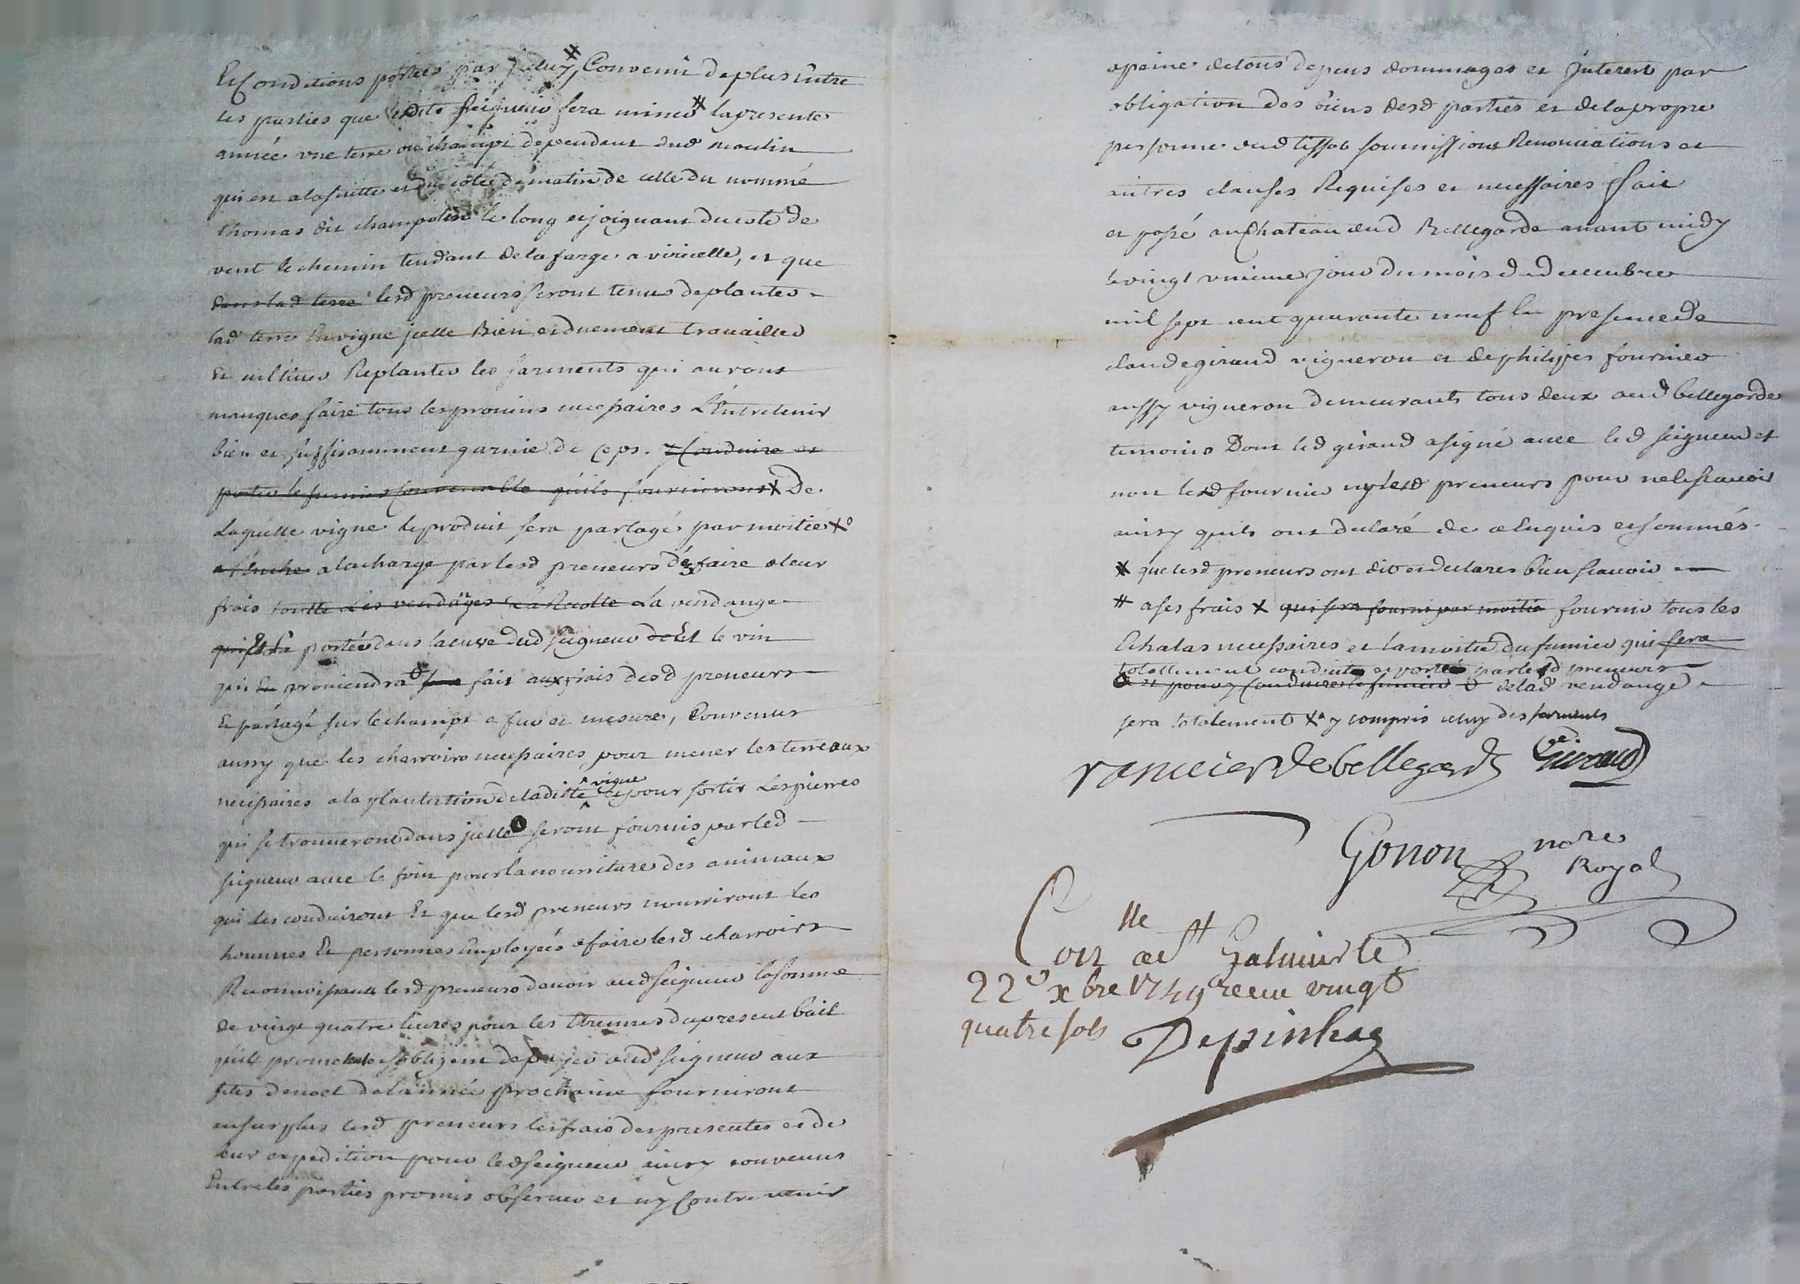 Et Conditions portées par iceluy, # Convenu de plus entre
les parties que ledit Seigneur fera miner # la presente
année une terre ou champt dependant dud moulin
qui est a la suitte et du coté de matin de celle du nommé
thomas dit champolin le long et joignant du coté de
vent le chemin tendant de la farge a viricelle, et que
dans lad terre lesd preneurs seront tenus de planter
lad terre En vigne jcelle Bien et duement travailler
Et cultiver Replanter les sarments qui auront
manques faire tous les provins necessaires L'Entretenir
bien et suffisamment garnie de Ceps. x Conduire et
porter le fumier convenable qu'ils fourniront x De
Laquelle vigne le produit sera partagé par moitié x°
a la charge par lesd preneurs de faire a leur
frais toutte Les vendanges La Recolte La vendange
portée dans la cuve dud seigneur et le vin
qui En proviendra fait aux frais desd preneurs
Et partagé sur le champt a fur et mesure, Convenus
aussy que les charrois necessaires pour mener les terreaux
necessaires a la plantation de laditte vigne et pour sortir Les pierres
qui se trouveront dans jcelle seront fournis par led
seigneur avec le foin pour la nourriture des animaux
qui les conduiront Et que lesd preneurs nourriront les
hommes Et personnes employées a faire lesd charrois
Reconnoissants lesd preneurs devoir aud seigneur la somme
de vingt quatre livres pour les Etrennes du present bail
qu'ils promettent s'obligent de payer aud seigneur aux
fetes de noel de l'année prochaine fourniront
en surplus lesd preneurs les frais des presentes et de
leur expedition pour led seigneur ainsy convenus
Entre les parties promis observer et n'y Contrevenir
a peine de tous depens dommages et Jnterets par
obligation des biens desd parties et de la propre
personne dud tissot soumissions Renonciations et
autres clauses Requises et necessaires fait
et passé au Chateau dud Bellegarde avant midy
le vingt unieme jour du mois de decembre
mil sept cent quarante neuf En presence de
claude giraud vigneron et de philippes fournier
aussy vigneron demeurants tous deux aud bellegarde
temoins Dont led giraud a signé avec led seigneur et
non led fournier ny lesd preneurs pour ne le scavoir
ainsy quils ont declaré de ce Enquis et sommés.
x que lesd preneurs ont dit et declarer bien scavoir
# a ses frais x qui sera fourni par moitié fournir tous les
Echalas necessaires et la moitié du fumier qui sera
totallement conduit et porté par lesd preneurs
et pouvoir Conduire le fumier de lad vendange
sera totalement x° y compris celuy des sarments
ranvier de bellegarde C. Giraud
Gonon no.re
Royal
Con.lle a S.t Galmier le
22e xbre 1749 Receu vingt
quatre sols Depinhac